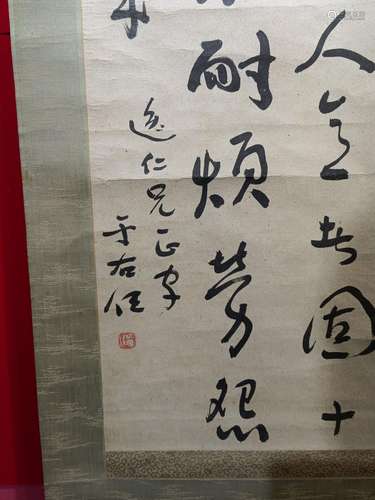 人意者固十
耐煩勞怨
逸仁兄正字
于右任